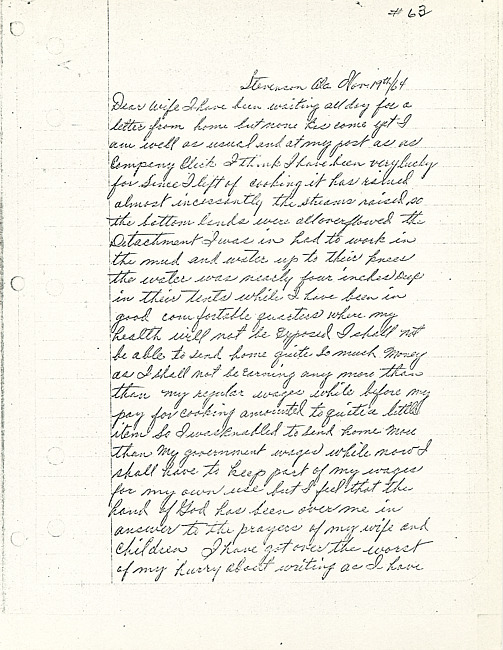 # 63
Stevenson Ala Nov 19th/64
Dear Wife I have been waiting all day for a
letter from home but none has come yet I
am well as usual and at my post as as
Company Clerk I think I have been very lucky
for Since I left of cooking it has rained
almost incessantly the streams raised so
the bottom lands were all overflowed the
Detachment I was in had to work in
the mud and water up to their knees
the water was nearly four inches deep
in their tents while I have been in
good comfortable quarters where my
health will not be exposed I shall not
be able to send home quite so much money
as I shall not be earning any more than
than my regular wages while before my
pay for cooking amounted to quite a little
item So I was enabled to send home more
than my government wages while now I
shall have to keep part of my wages
for my own use but I feel that the
hand of God has been over me in
answer to the prayers of my wife and
children I have got over the worst
of my hurry about writing as I have